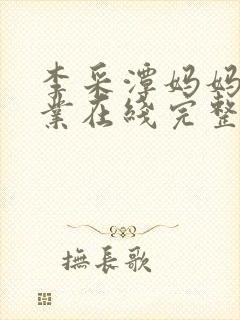 李采潭妈妈
業在綫完整
撫長歌